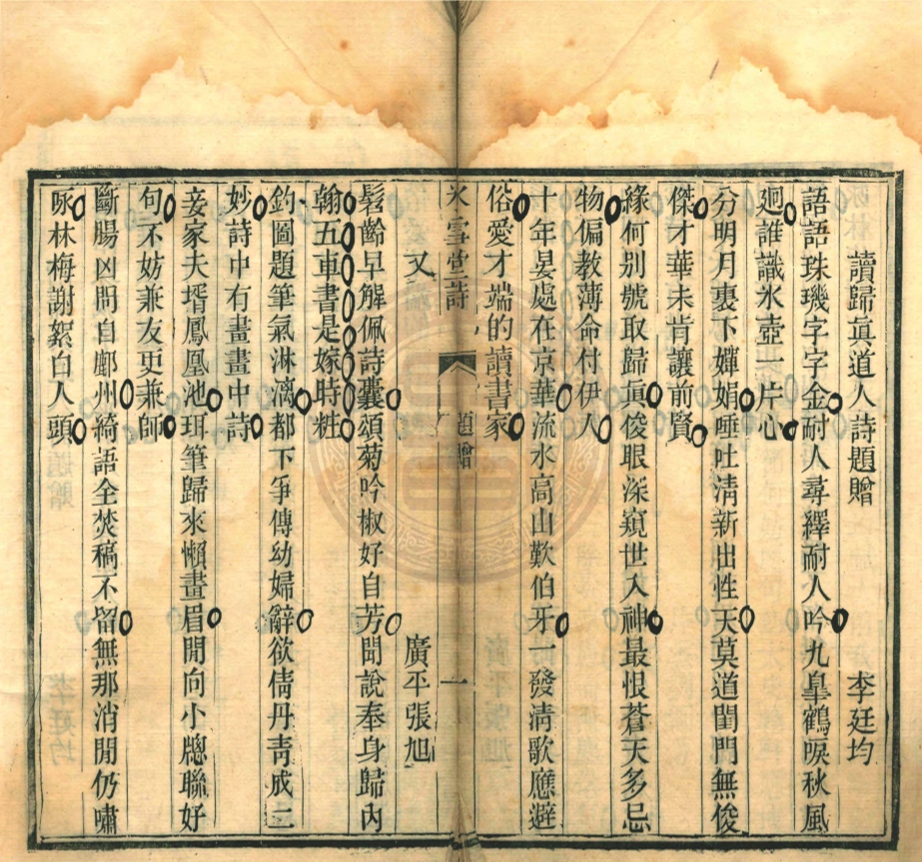 讀歸眞道人詩題贈 李廷均
語語珠璣字字金耐人尋繹耐人吟九臯鶴唳秋風
迥誰識氷壺一片心
分明月裏下嬋娟唾吐淸新出性天莫道閨門無俊
傑才華未肯讓前賢
緣何别號取歸眞俊眼深窺世入神最恨蒼天多忌
物偏教薄命付伊人
十年晏處在京華流水高山歎伯牙一發淸歌應避
俗愛才端的讀書家
氷雪堂詩 題贈 一
又 廣平張旭
髫齡早解佩詩囊頌菊吟椒好自芳聞說奉身歸內
翰五車書是嫁時粧
釣圖題筆氣淋漓都下爭傳幼婦辭欲倩丹靑成三
妙詩中有畫畫中詩
妾家夫壻鳳凰池珥筆歸來懶畫眉閒向小牕聯好
句不妨兼友更兼師
斷腸凶問自鄜州綺語全焚稿不留無那消閒仍嘯
咏林梅謝絮白人頭